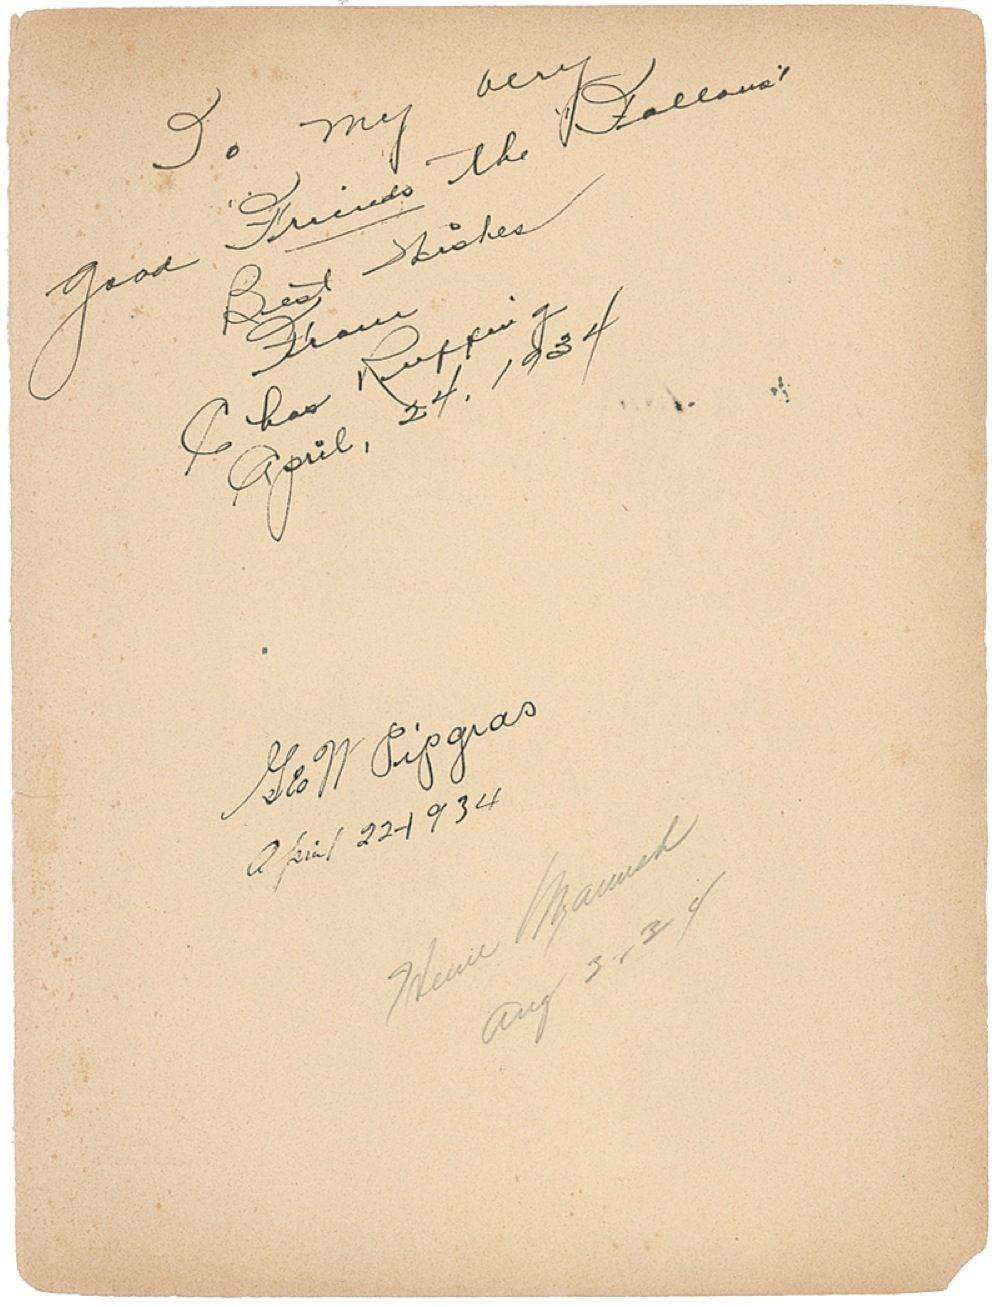 To my very
good "Friends the "Fallons"
Best Wishes
From
Chas Ruffing
April, 24, 1934
Geo W Pipgras
April 22-1934
Heinie Manush
Aug 3-34